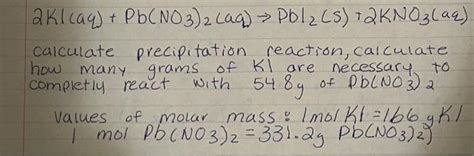 2KI(aq) + Pb(NO3)2(aq) → PbI2(s) + 2KNO3(aq)
calculate precipitation reaction, calculate
how many grams of KI are necessary to
completly react with 54.8g of Pb(NO3)2
values of molar mass: 1mol KI = 166 g KI
1 mol Pb(NO3)2 = 331.2g Pb(NO3)2)